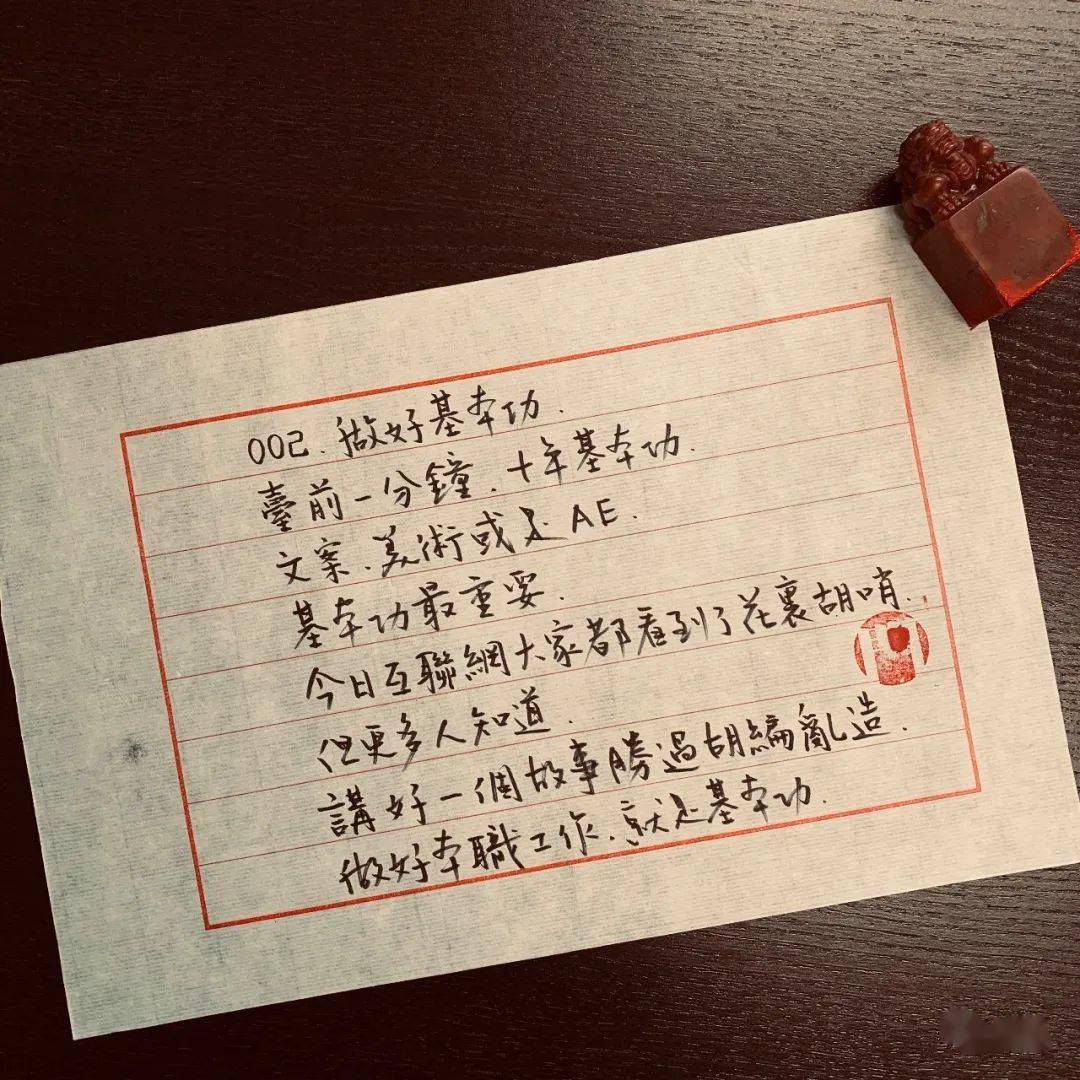 002.做好基本功.
臺前一分鐘.十年基本功.
文案.美術或是AE.
基本功最重要.
今日互聯網大家都看到了花裏胡哨.
但更多人知道.
講好一個故事勝過胡編亂造.
做好本職工作.就是基本功.